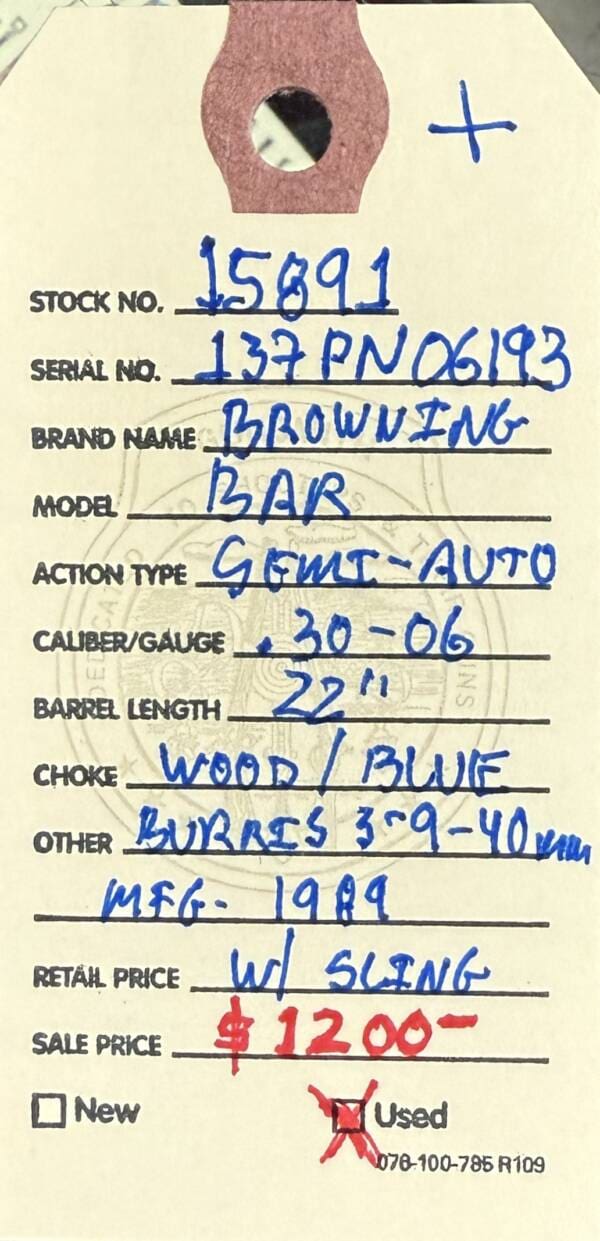 +
STOCK NO. 15891
SERIAL NO. 137PN06193
BRAND NAME BROWNING
MODEL BAR
ACTION TYPE SEMI-AUTO
CALIBER/GAUGE .30-06
BARREL LENGTH 22"
CHOKE WOOD/BLUE
OTHER BURRIS 3-9-40mm
MFG- 1989
RETAIL PRICE W/ SLING
SALE PRICE $1200-
New Used
078-100-785 R109